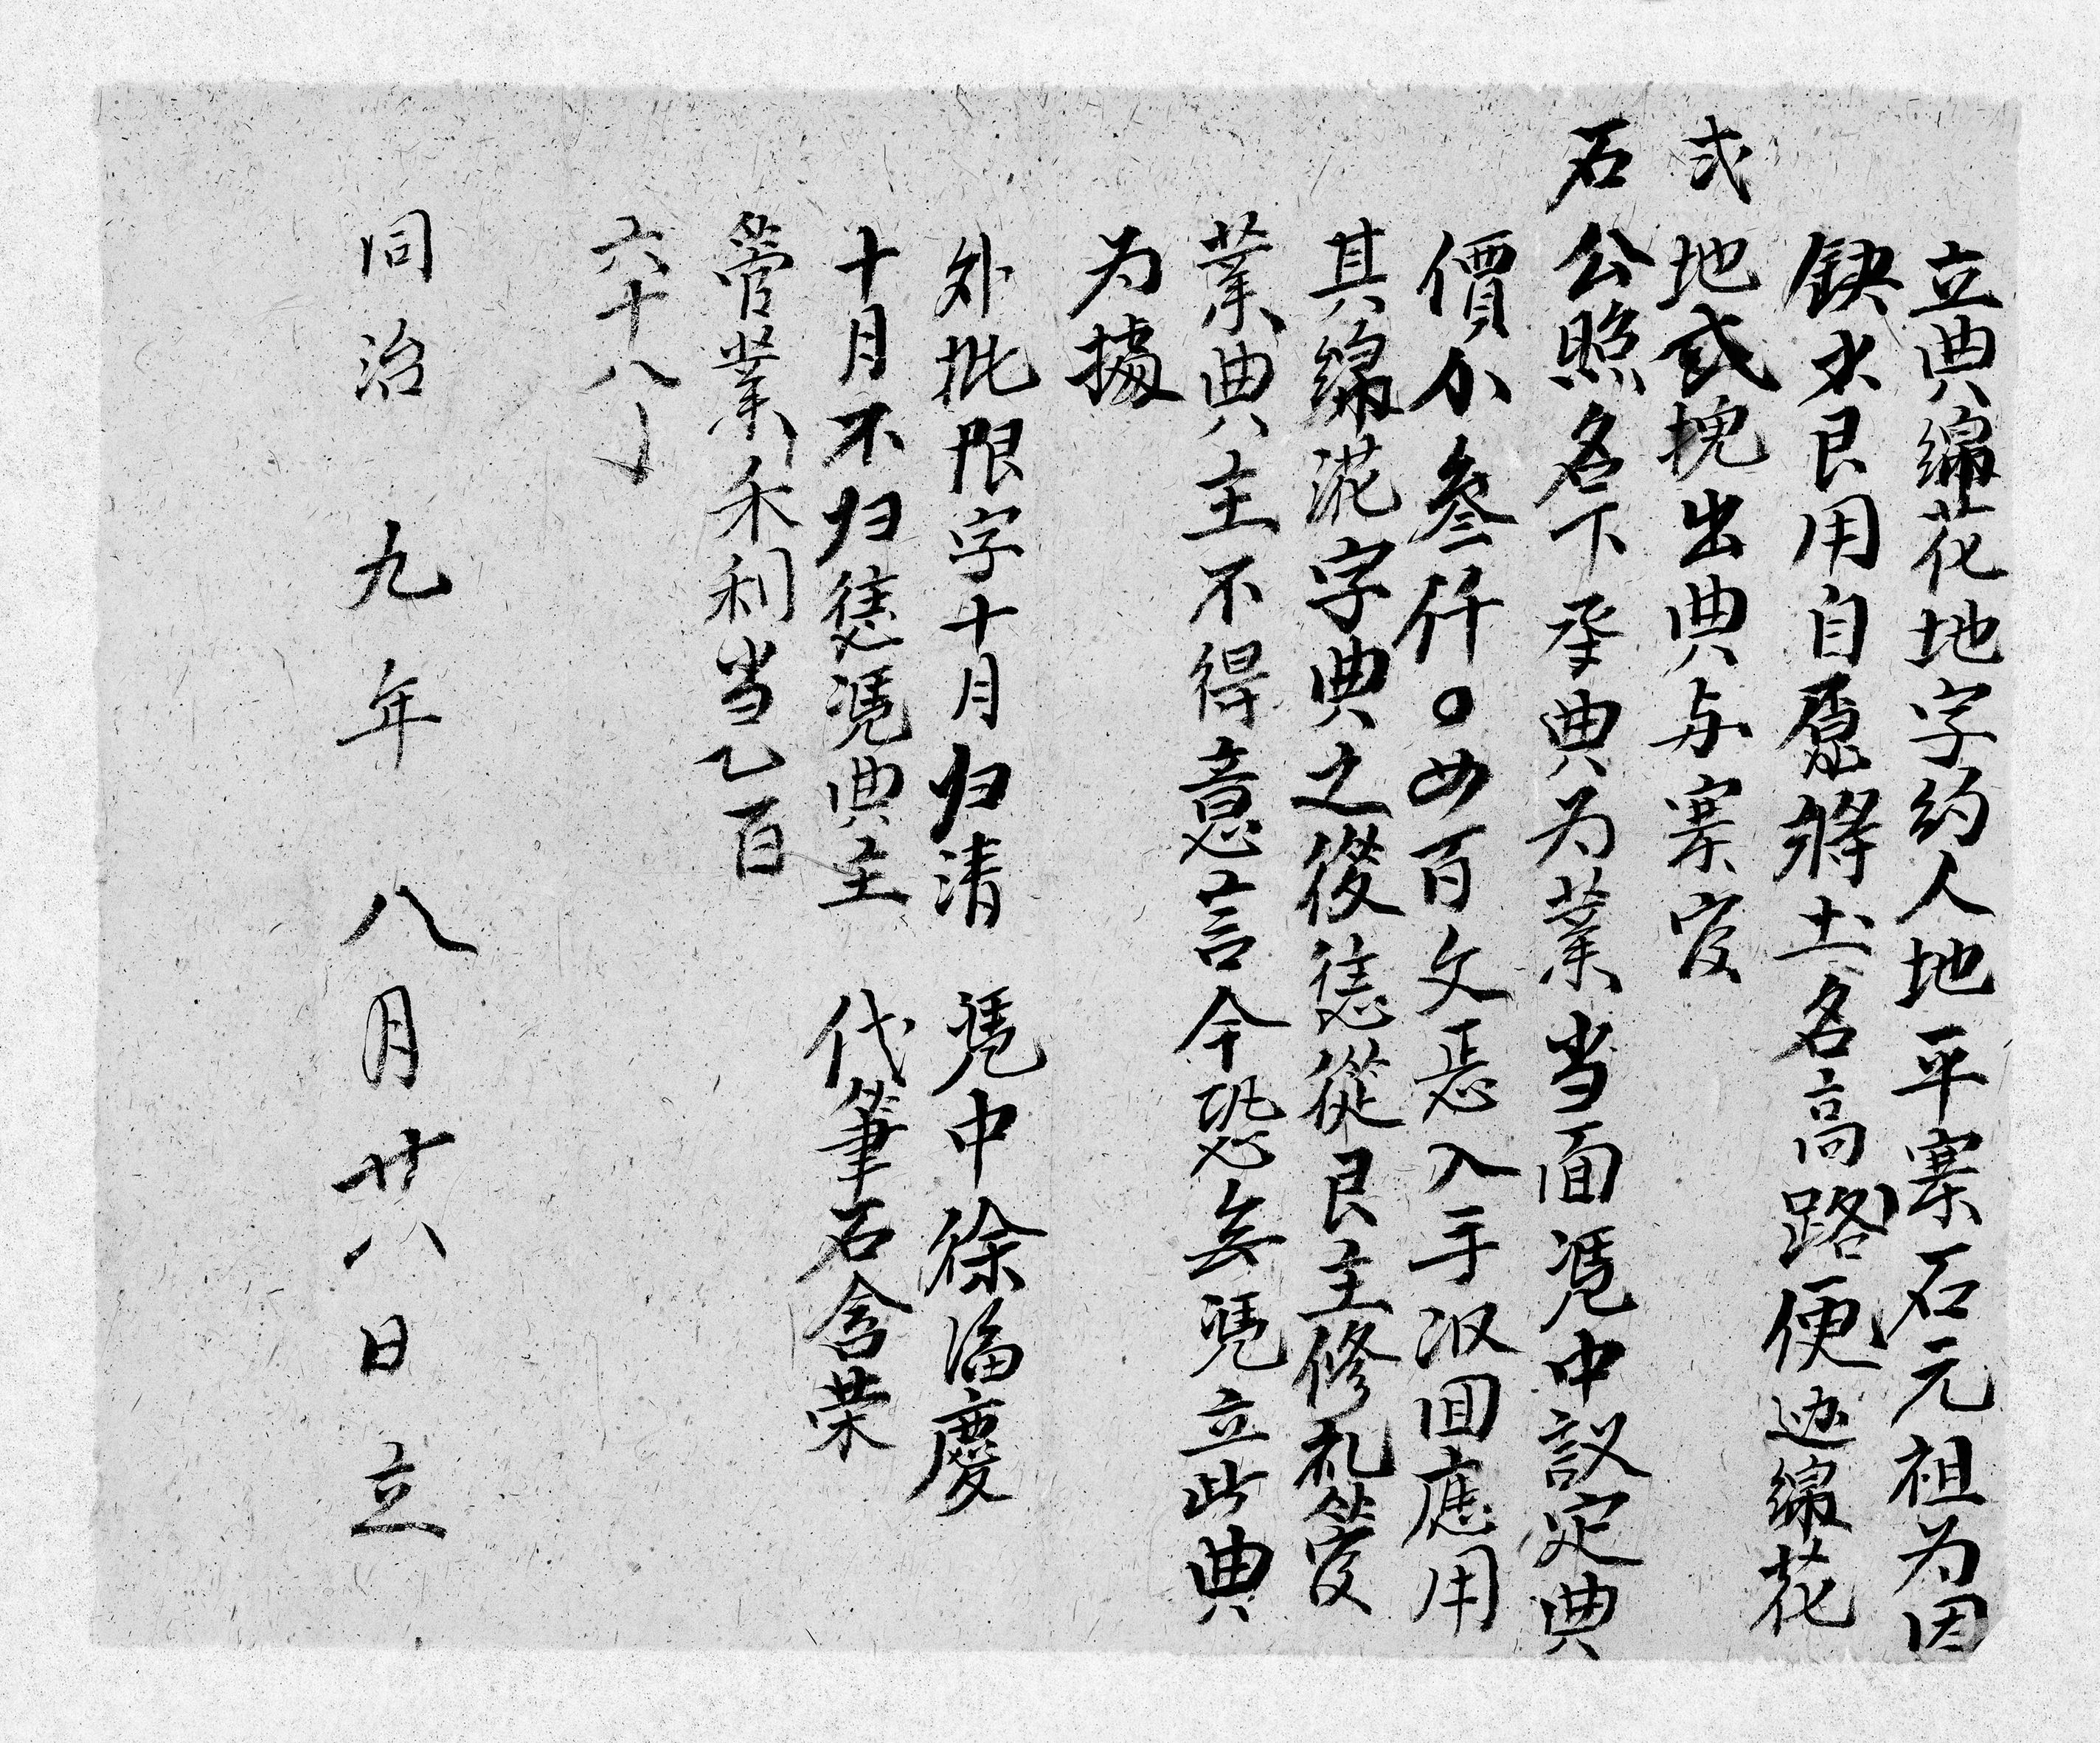 立典綿花地字約人地平寨石元祖为因
缺少艮用自愿將土名高路便边綿花
弍地弍塊出典与寨度
石公照名下承典为業当面凭中議定典
價小叁仟〇四百文悉入手収回應用
其綿花字典之後恁從艮主修札管
業典主不得意言今恐無凭立此典
为據
外批限字十月归清 凭中徐滔慶
十月不归恁凭典主 代筆石含荣
管業禾利当乙百
六十八
同治九年八月廿八日立